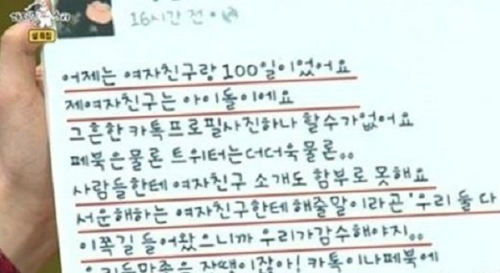 설특집
16시간 전
어제는 여자친구랑 100일이었어요
제여자친구는 아이돌이에요
그흔한 카톡프로필사진하나 할수가없어요
페북은물론 트위터는더더욱물론..
사람들한테 여자친구 소개도 함부로 못해요
서운해하는 여자친구한테 해줄말이라곤 '우리 둘 다
이쪽길 들어왔으니까 우리가감수해야지..
카톡이나페북에